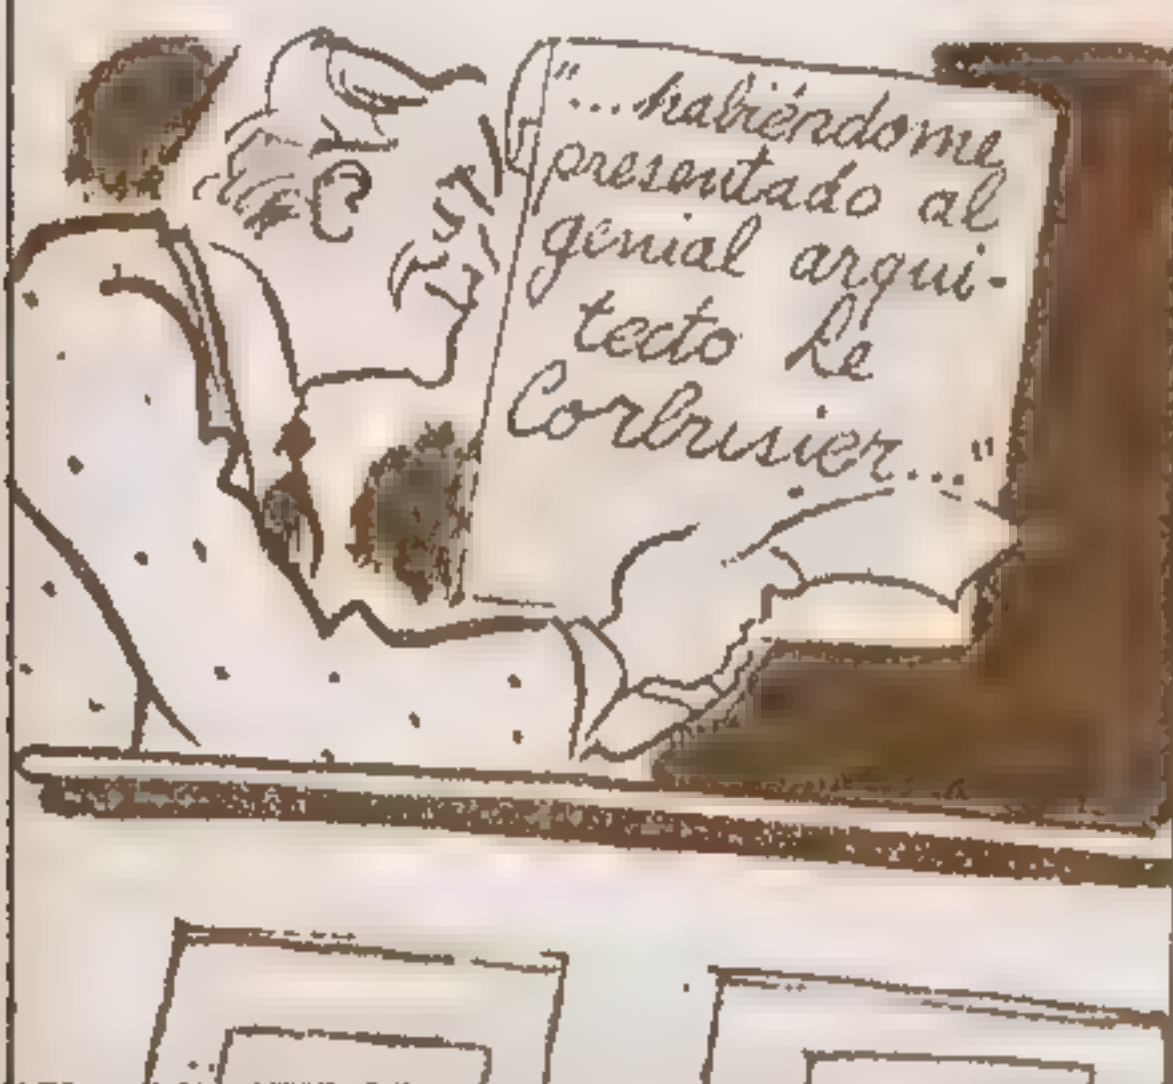 "...habiéndome
presentado al
genial arqui-
tecto Le
Corbusier..."